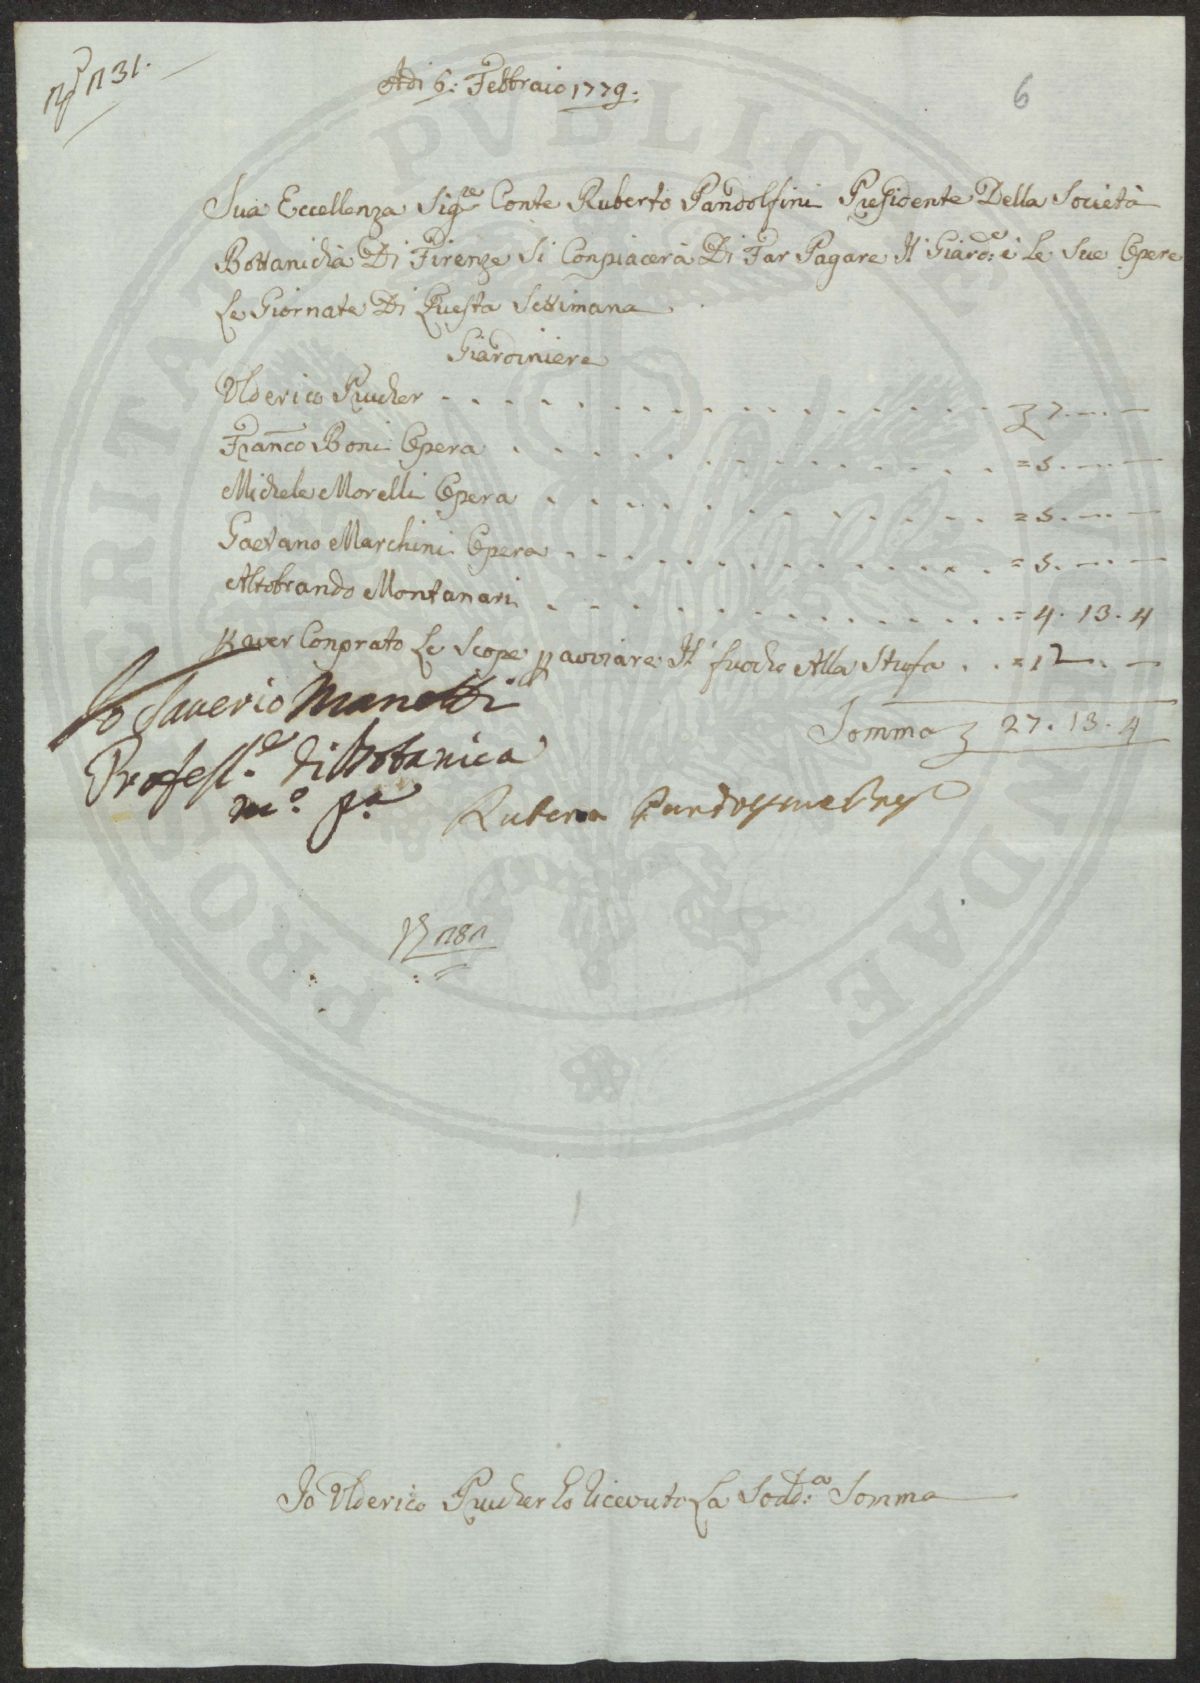 n° 131.
Adi 6: Febbraio 1779.
6
Sua Eccellenza Sig.re Conte Ruberto Pandolfini Presidente Della Società
Bottanicha Di Firenze Si Conpiacerà Di Far Pagare Il Giard:e e Le Sue Opere
Le Giornate Di Questa Settimana
Giardiniere
Ulderico Prucher 7.—.—
Franco Boni Opera = 5.—.—
Michele Morelli Opera = 5.—.—
Gaetano Marchini Opera = 5.—.—
Altobrando Montanari = 4.13.4
p aver Conprato Le Scope p avviare Il fuocho Alla Stufa = 1
Somma 27.13.4
Io Saverio Manetti
Profess.e di Botanica
m.o p.a
Ruberto
Io Ulderico Prucher ho Ricevuto La Sodd:a Somma
FRSOR CRITATE PVBLICAE